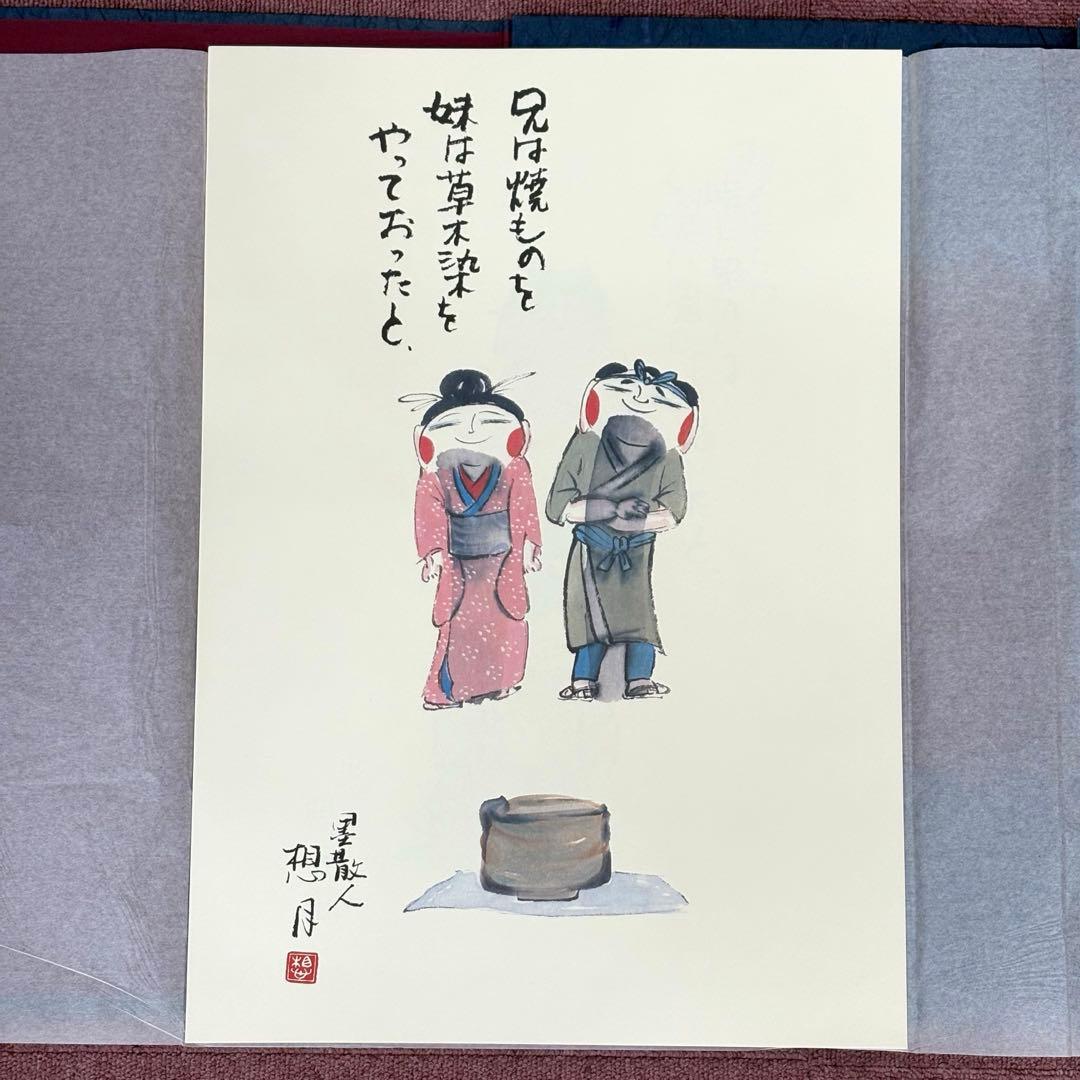 兄は焼ものを
妹は草木染を
やっておったと、
墨散人
想月